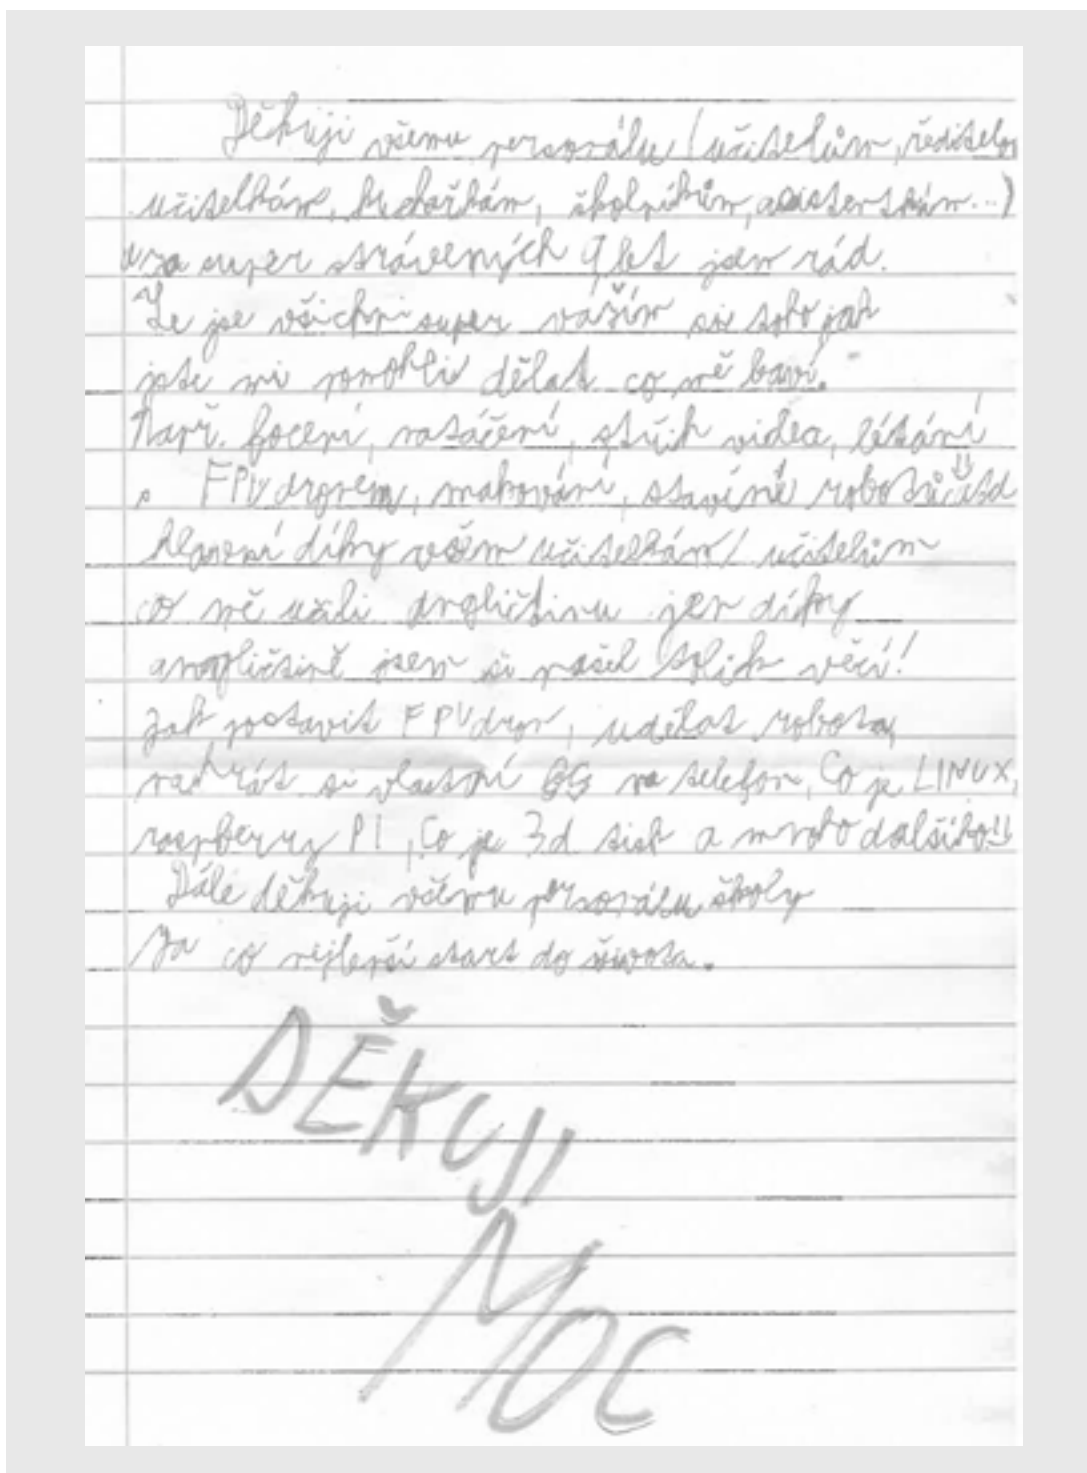 Děkuji všemu personálu (učitelům, ředitelům
učitelkám, kuchařkám, školníkům, asistentkám...)
za super strávených 9 let jsem rád.
Že jse všichni super vážím si toho jak
jste mi pomohli dělat co mě baví.
Např. focení, natáčení, střih videa, létání
s FPV dronem, makování, stavíně robotů atd
hlavní díky všem učitelkám/učitelům
co mě učili angličtinu jen díky
angličtině jsem si našel tolik věcí!
Jak postavit FPV dron, udělat robota,
nahrát si vlastní na telefon, Co je LINUX,
raspberry PI, Co je 3d tisk a mnoho dalšího!!
Dále děkuji všemu personálu školy
Za co nejlepší start do života.
DĚKUJI
MOC